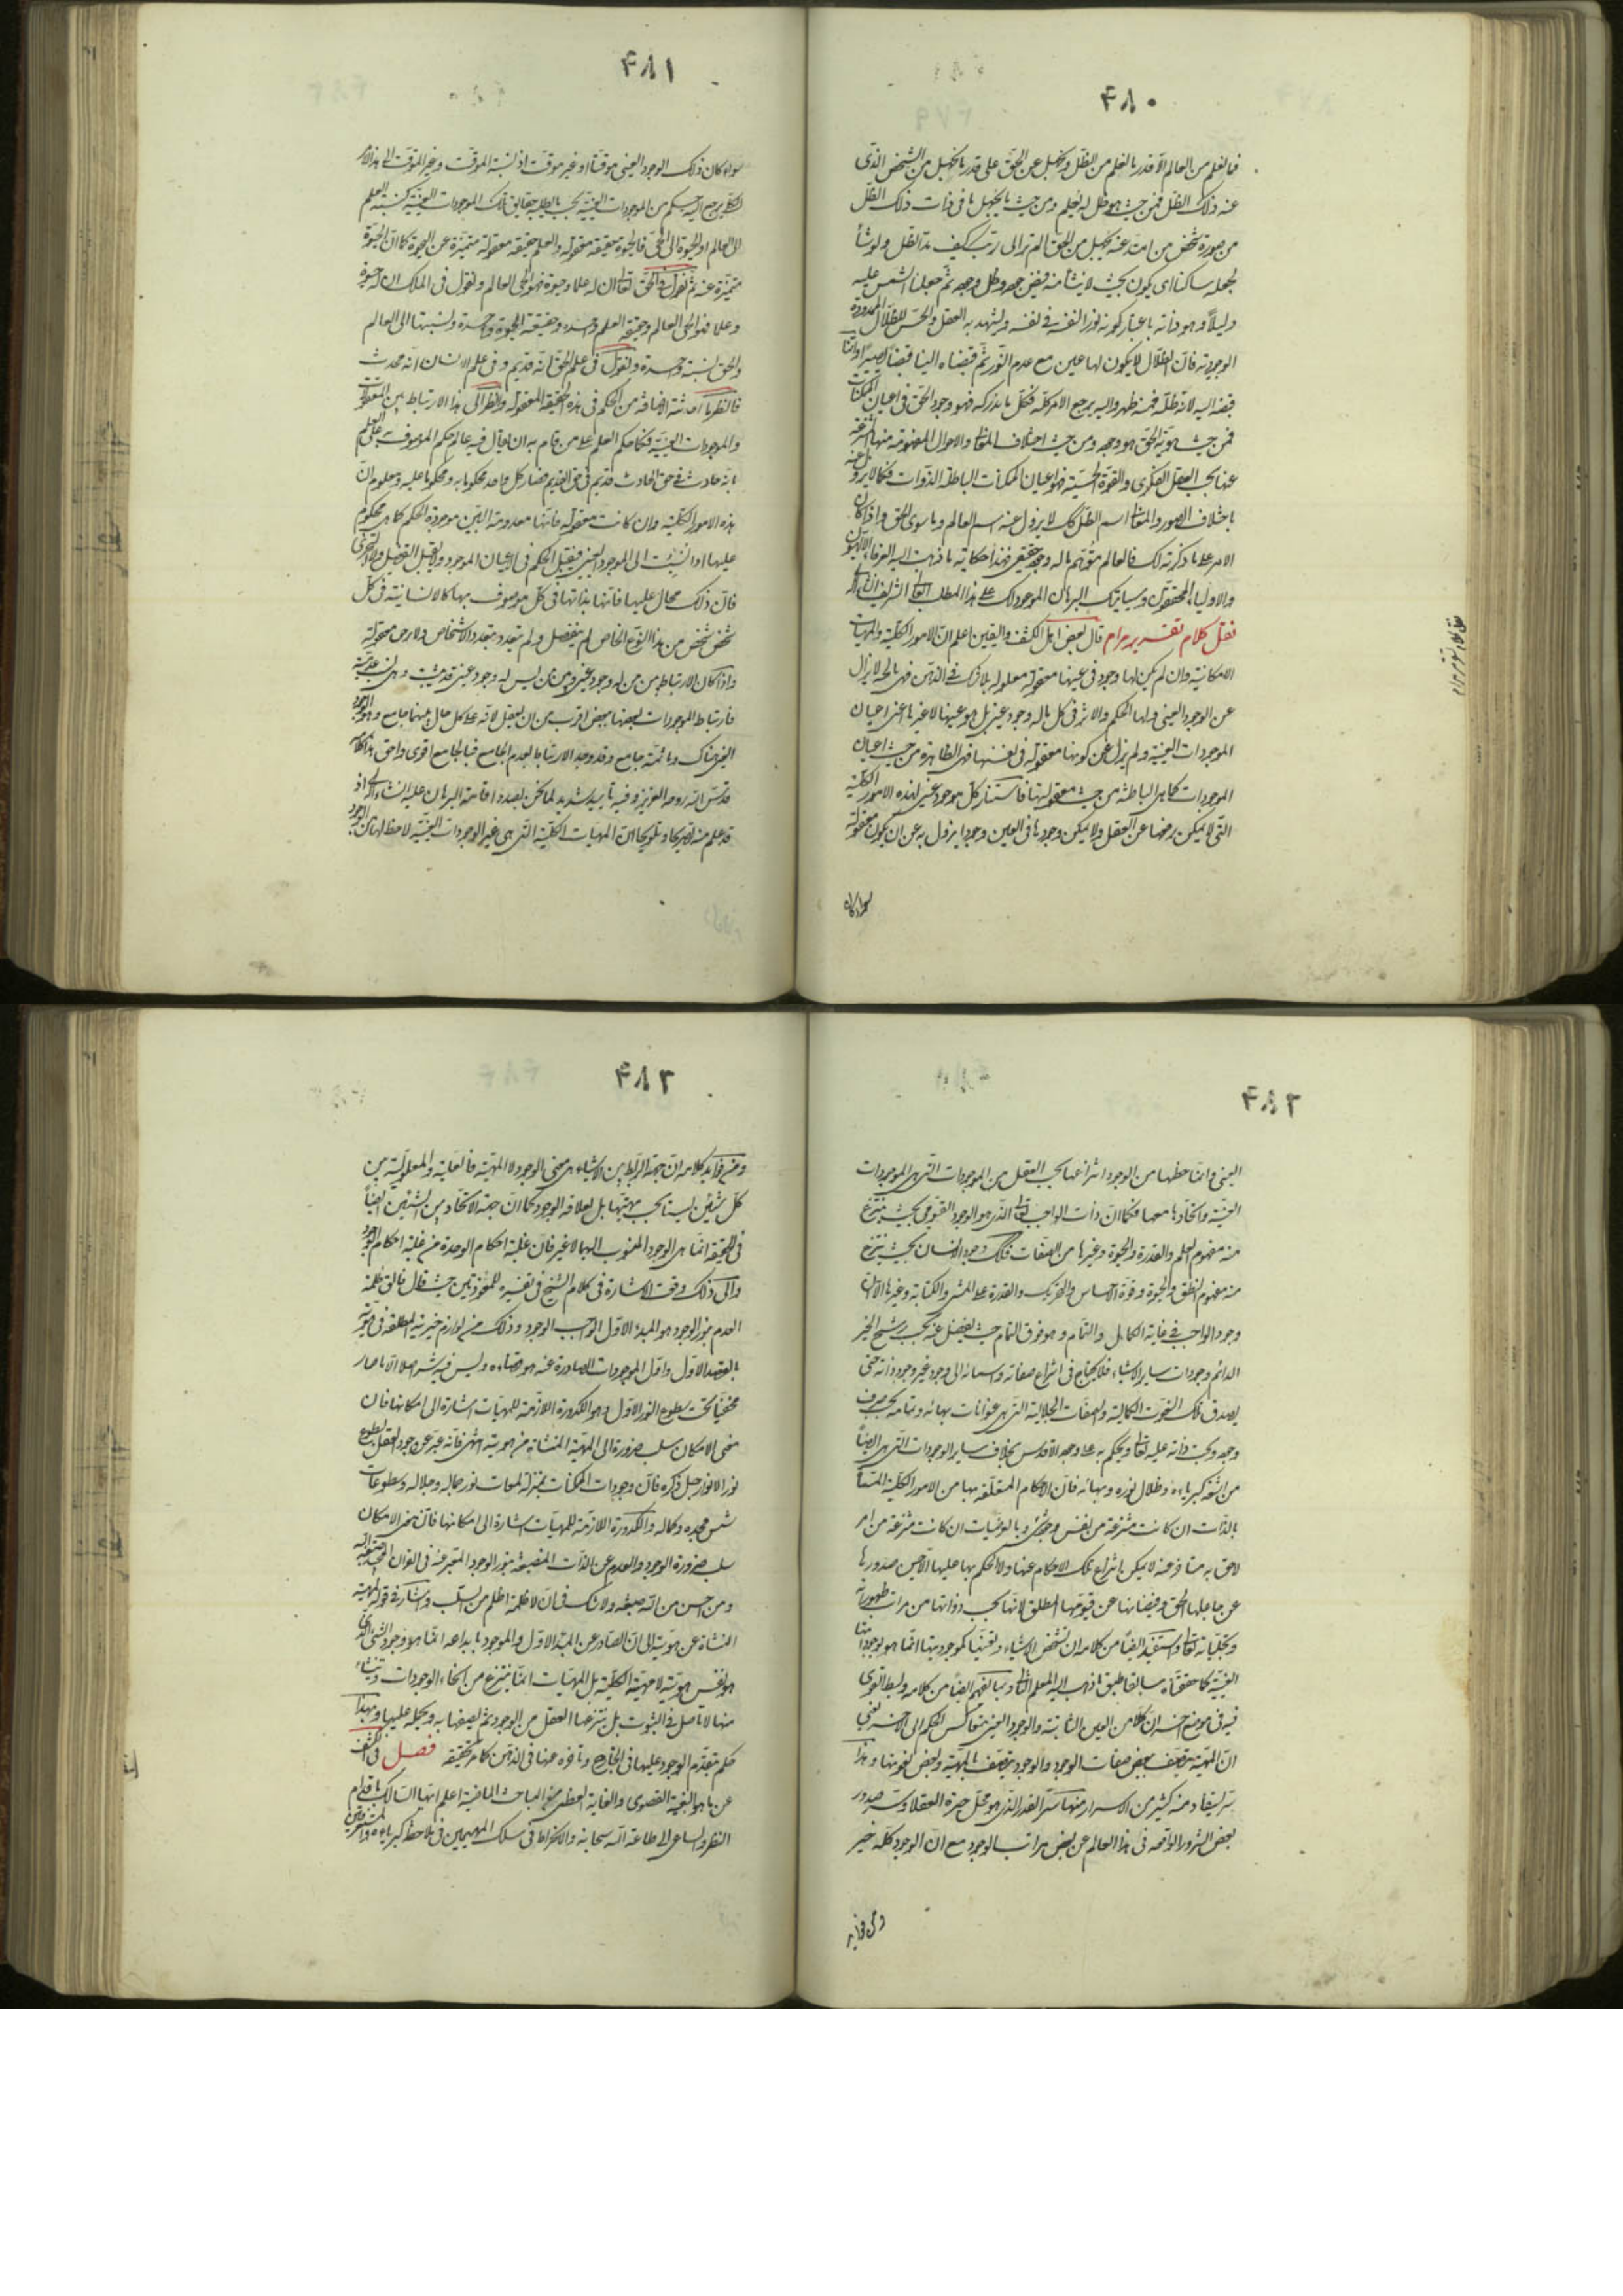 ۴۸۰
فما نعلم من العالم الا قدر ما نعلم من الظل ونجهل عن الحق على قدر ما نجهل من الشخص الذى
عنه ذلك الظل فمن حيث هو ظل له يعلم ومن حيث ما يجهل ما فى ذات ذلك الظل
من صورة شخص من امتد عنه يجهل من الحق الم تر الى ربك كيف مد الظل ولو شاء
لجعله ساكنا اى يكون بحيث لا ينشأ منه فيض جوده وظل وجوده ثم جعلنا الشمس عليه
دليلا وهو ذاته باعتبار كونه نورا لنفسه فى نفسه ويشهد به العقل والحس للظلال الممدودة
الوجودية فان الظلال لا يكون لها عين مع عدم النور ثم قبضناه الينا قبضا يسيرا وانما
قبضه اليه لانه ظله فمنه ظهر واليه يرجع الامر كله فكل ما ندركه فهو وجود الحق فى اعيان الممكنات
فمن حيث هوية الحق هو وجوده ومن حيث اختلاف المعانى والاحوال المفهومة منها المنتزعة
عنها بحسب العقل الفكرى والقوة الحسية فهو اعيان الممكنات الباطلة الذوات فكما لا يزول عنه
باختلاف الصور والمعانى اسم الظل كذلك لا يزول عنه اسم العالم وما سوى الحق واذا كان
الامر على ما ذكرته لك فالعالم متوهم ما له وجود حقيقى فهذا حكاية ما ذهبت اليه العرفاء الالهيون
والاولياء المحققون وسيأتيك البرهان الموعود لك على هذا المطلب العالى الشريف ان شاء الله
نقل كلام لتقريب مرام قال بعض اهل الكشف واليقين اعلم ان الامور الكلية والمهيات
الامكانية وان لم يكن لها وجود فى عينها فهى معقولة معلومة بلا شك فى الذهن فهى باطنة لا يزال
عن الوجود العينى ولها الحكم والاثر فى كل ما له وجود عينى بل هو عينها لا غيرها اعنى اعيان
الموجودات العينية ولم يزل عن كونها معقولة فى نفسها فهى الظاهرة من حيث اعيان
الموجودات كما هى الباطنة من حيث معقوليتها فاستناد كل موجود عينى لهذه الامور الكلية
التى لا يمكن رفعها عن العقل ولا يمكن وجودها فى العين وجودا يزول به عن ان يكون معقولة
سواء كان
نقل كلام لتقريب مرام
۴۸۱
سواء كان ذلك الوجود العينى موقتا او غير موقت اذ نسبة الموقت وغير الموقت الى هذا الامر
الكلى يرجع اليه حكم من الموجودات العينية بحسب ما يطلبه حقايق تلك الموجودات العينية كنسبة العلم
الى العالم والحيوة الى الحى فالحيوة حقيقة معقولة والعلم حقيقة معقولة متميزة عن الحيوة كما ان الحيوة
متميزة عنه ثم نقول فى الحق تعالى ان له علما وحيوة فهو الحى العالم ونقول فى الملك ان له حيوة
وعلما فهو الحى العالم وحقيقة العلم واحدة وحقيقة الحيوة واحدة ونسبتها الى العالم
والحى نسبة واحدة ونقول فى علم الحق انه قديم وفى علم الانسان انه محدث
فانظر ما احدثته الاضافة من الحكم فى هذه الحقيقة المعقولة وانظر الى هذا الارتباط بين المعقولات
والموجودات العينية فكما حكم العلم على من قام به ان يقال فيه عالم حكم الموصوف به على العلم
بانه حادث فى حق الحادث قديم فى حق القديم فصار كل واحد محكوما به ومحكوما عليه ومعلوم ان
هذه الامور الكلية وان كانت معقولة فانها معدومة العين موجودة الحكم كما هى محكوم
عليها اذا نسبت الى الموجود العينى فيقبل الحكم فى الاعيان الموجودة ولا يقبل التفصيل ولا التجزى
فان ذلك محال عليها فانها بذاتها فى كل موصوف بها كالانسانية فى كل
شخص شخص من هذا النوع الخاص لم يتفصل ولم يتعدد بتعدد الاشخاص ولا برحت معقولة
واذا كان الارتباط بين من له وجود عينى وبين من ليس له وجود عينى قد ثبت وهى نسب عدمية
فارتباط الموجودات بعضها ببعض اقرب من ان يعقل لانه على كل حال بينهما جامع وهو الوجود
العينى وهناك وما ثمة جامع وقد وجد الارتباط بعدم الجامع فبالجامع اقوى واحق هذا كلامه
قدس الله روحه العزيز وفيه تأييد شديد لما نحن بصدد اقامة البرهان عليه انشاء الله اذ
قد علم منه تصريحا وتلويحا ان المهيات الكلية التى هى غير الوجودات العينية لا حظ لها من الوجود
۴۸۲
العينى وانما حظها من الوجود انتزاعها بحسب العقل من الموجودات التى هى الموجودات
العينية واتحادها معها فكما ان ذات الواجب تعالى الذى هو الوجود القيومى بحيث ينتزع
منه مفهوم العلم والقدرة والحيوة وغيرها من الصفات فكذلك وجود الانسان بحيث ينتزع
منه مفهوم النطق والحيوة وقوة الاحساس والتحريك والقدرة على المشى والكتابة وغيرها الا ان
وجود الواجب فى غاية الكمال والتمام وهو فوق التمام حيث يفضل عنه بحسب رشح الخير
الدائم وجودات ساير الاشياء فلا يحتاج فى انتزاع صفاته واسمائه الى وجود غير وجود ذاته حتى
يصدق تلك النعوت الكمالية والصفات الجلالية التى هى عنوانات بهائه وتمامه بحسب صرف
وجوده وبحت ذاته عليه تعالى ويحكم بها على وجهه الاقدس بخلاف ساير الوجودات التى هى ايضا
من اشعة كبريائه وظلال نوره وبهائه فان الاحكام المتعلقة بها من الامور الكلية المسماة
بالذات ان كانت منتزعة من نفس وجودها شئ وبالعرضيات ان كانت منتزعة من امر
لاحق به متأخر عنه لا يمكن انتزاع تلك الاحكام عنها ولا الحكم بها عليها الا حين صدورها
عن جاعلها الحق وفيضانها عن قيومها المطلق لانها بحسب ذواتها من مراتب ظهوراته
وتجلياته تعالى واستفيد ايضا من كلامه ان تشخص الاشياء وتعينها كموجوديتها انما هو بوجوداتها
العينية كما حققناه سابقا طبق ما ذهب اليه المعلم الثانى ومما يفهم ايضا من كلامه وبسط القول
فيه فى موضع اخر ان كلا من العين الثابتة والوجود العينى متعاكس الحكم الى الاخر يعنى
ان المهية يتصف ببعض صفات الوجود والوجود يتصف بالمهية وبعض نعوتها وهذا
سر يستفاد منه كثير من الاسرار منها سر القدر الذى هو محل حيرة العقلاء وسر صدور
بعض الشرور الواقعة فى هذا العالم عن بعض مراتب الوجود مع ان الوجود كله خير
ومن فوايد
۴۸۳
ومن فوايد كلامه ان جهة الربط بين الاشياء هى معنى الوجود لا المهية فالعلية والمعلولية بين
كل شيئين ليستا بحسب مهيتهما بل لعلاقة الوجود كما ان جهة الاتحاد بين الشيئين ايضا
فى الحقيقة انما هى الوجود المنسوب اليهما لا غير فان غلبة احكام الوحدة من غلبة احكام الوجود
والى ذلك وقعت الاشارة فى كلام الشيخ فى تفسيره للمعوذتين حيث قال فالق ظلمة
العدم بنور الوجود هو المبدء الاول الواجب الوجود وذلك من لوازم خيريته المطلقة فى هويته
بالقصد الاول واول الموجودات الصادرة عنه هو قضاءه وليس فيه شر اصلا الا ما صار
مخفيا تحت سطوع النور الاول وهو الكدورة اللازمة للمهيات اشارة الى امكانها فان
معنى الامكان سلب ضرورة الى المهية المنشأة من هويته انتهى فانه عبر عن وجود العقل بسطوع
نور الانوار جل ذكره فان وجودات الممكنات بمنزلة لمعات نور جماله وجلاله وسطوعات
شمس مجده وكماله والكدورة اللازمة للمهيات اشارة الى امكانها فان معنى الامكان
سلب ضرورة الوجود والعدم عن الذات المنصبغة بنور الوجود المعبر عنه فى القران المجيد بصبغة الله
ومن احسن من الله صبغة ولا شك فى ان لا ظلمة اظلم من السلب واشار فى قوله المهية
المنشأة عن هويته الى ان الصادر عن المبدء الاول والموجود بابداعه انما هو وجود الشئ الذى
هو نفس هويته لا مهيته الكلية بل المهيات انما ينتزع من انحاء الوجودات وتنشأ
منها لا تأصل فى الثبوت بل ينتزعها العقل من الوجود ثم يصفها به ويحمله عليها ولهذا
حكم بتقدم الوجود عليها فى الخارج وتأخره عنها فى الذهن كما مر تحقيقه فصل فى الكشف
عن ما هو البغية القصوى والغاية العظمى من المباحث الماضية اعلم ايها السالك باقدام
النظر والساعى الى طاعة الله سبحانه والانخراط فى سلك المهيمين فى ملاحظة كبريائه والمستغرقين